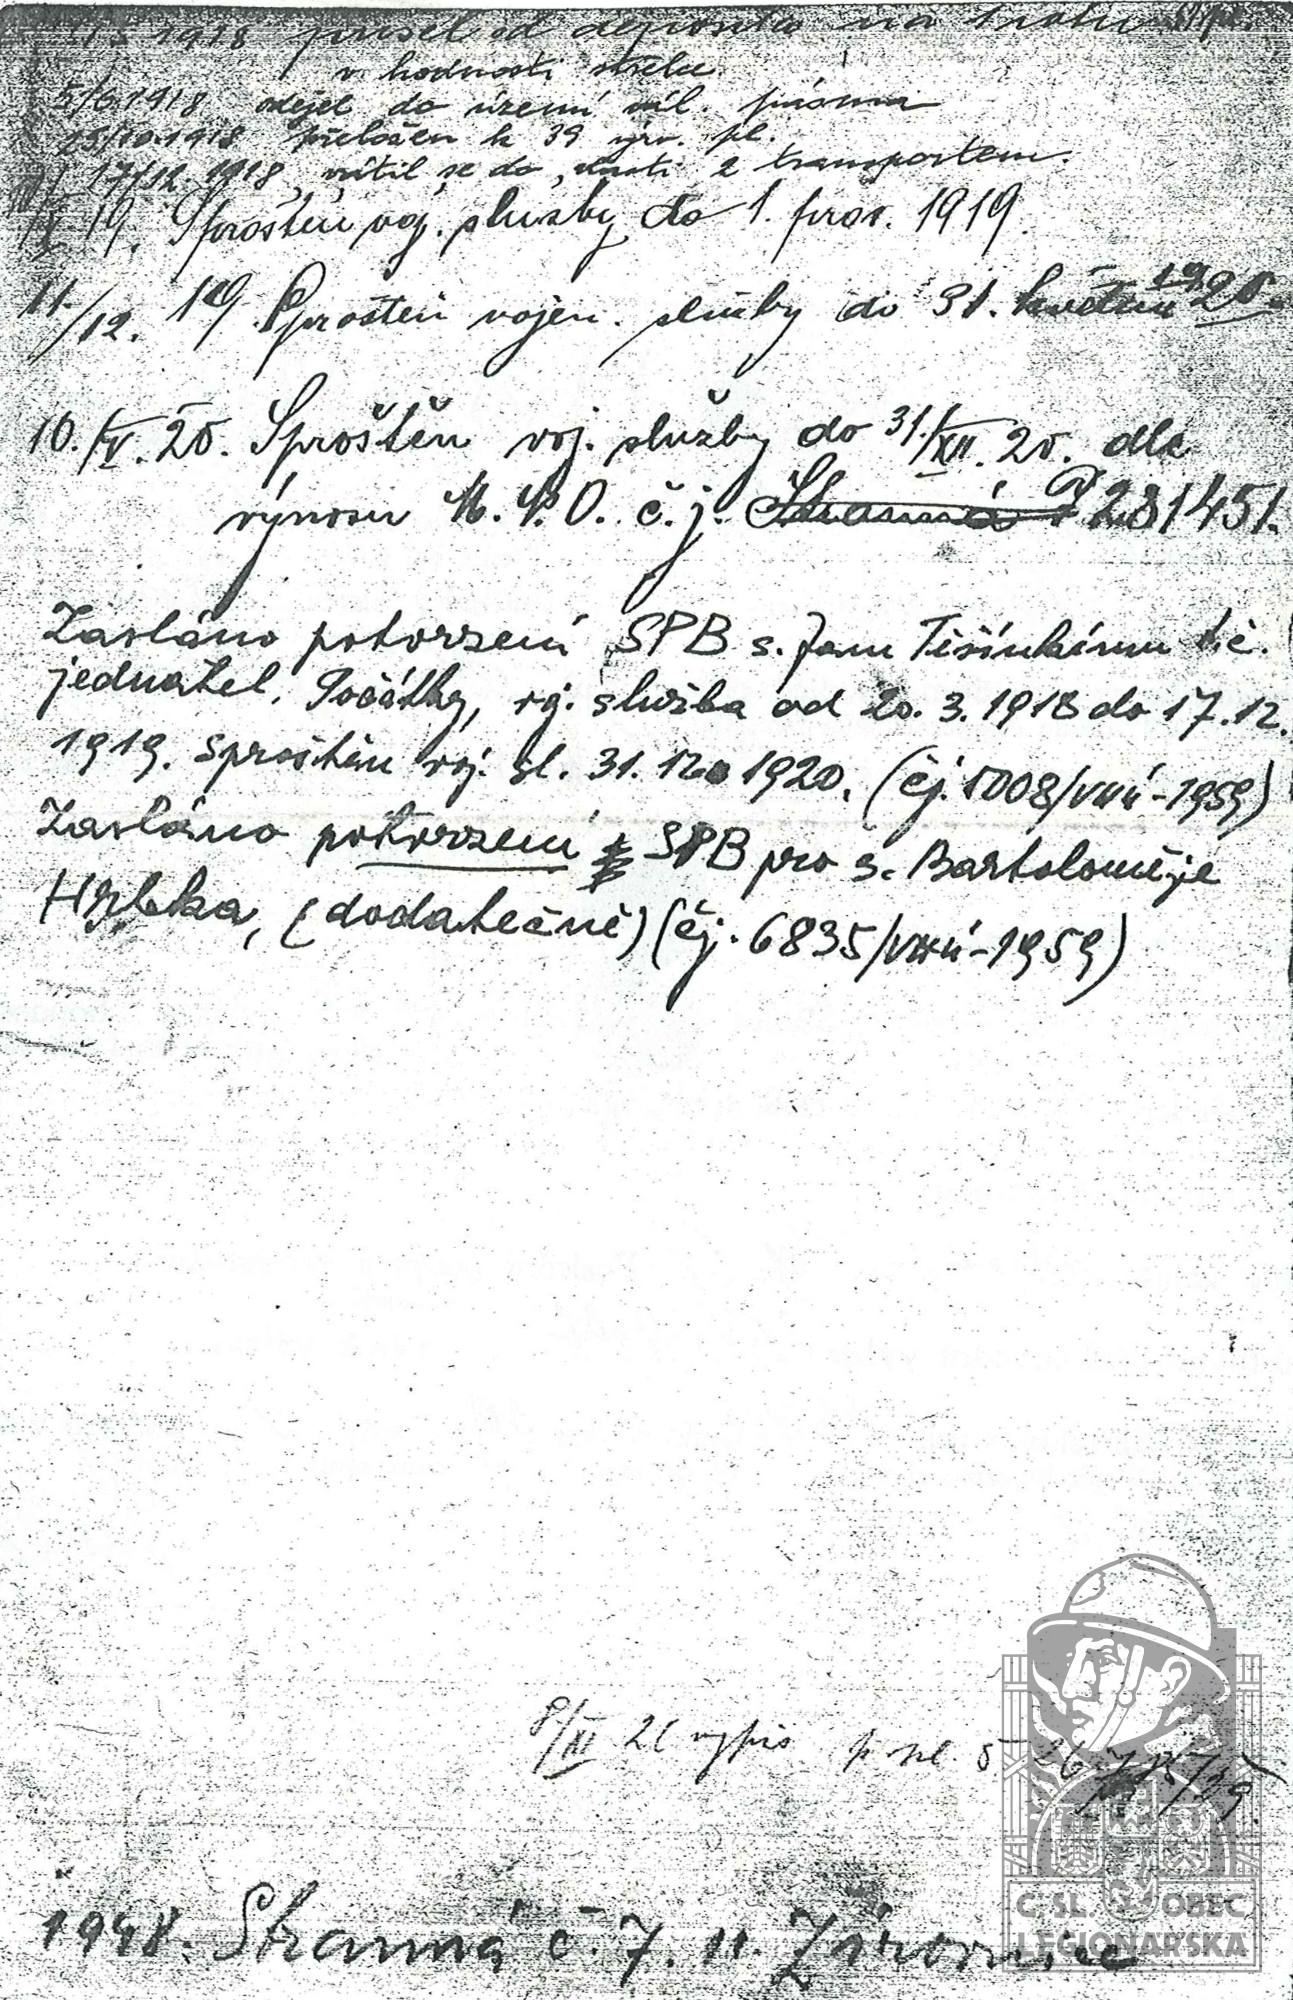 1918 přišel od deposita na frontu
v hodnosti střelce.
5/6 1918 odjel do území vál. pásma
25/10.1918 přeložen k 39 výz. pl.
17/12 1918, vrátil se do vlasti 2 transportem.
19. Sproštěn voj. služby do 1. pros. 1919.
11./12. 19 Sproštěn vojen. služby do 31. května 1920.
10./V. 20. Sproštěn voj. služby do 31./XII. 20. dle
výnosu M.N.O. č.j. 281451.
Zasláno potvrzení SPB s. Janu Tišínskímu t.č.
jednatel. Počátky, voj. služba od 20. 3. 1918 do 17. 12.
1919. Sproštěn voj. sl. 31. 12. 1920. (čj. 1008/VHÚ-1959)
Zasláno potvrzení SPB pro s. Bartoloměje
Hrbka, (dodatečně) (čj. 6835/VHÚ-1959)
8/III 26 výpis
1948. Stranná č. 7. u Žirovnice
Č. SL. OBEC
LEGIONÁŘSKÁ